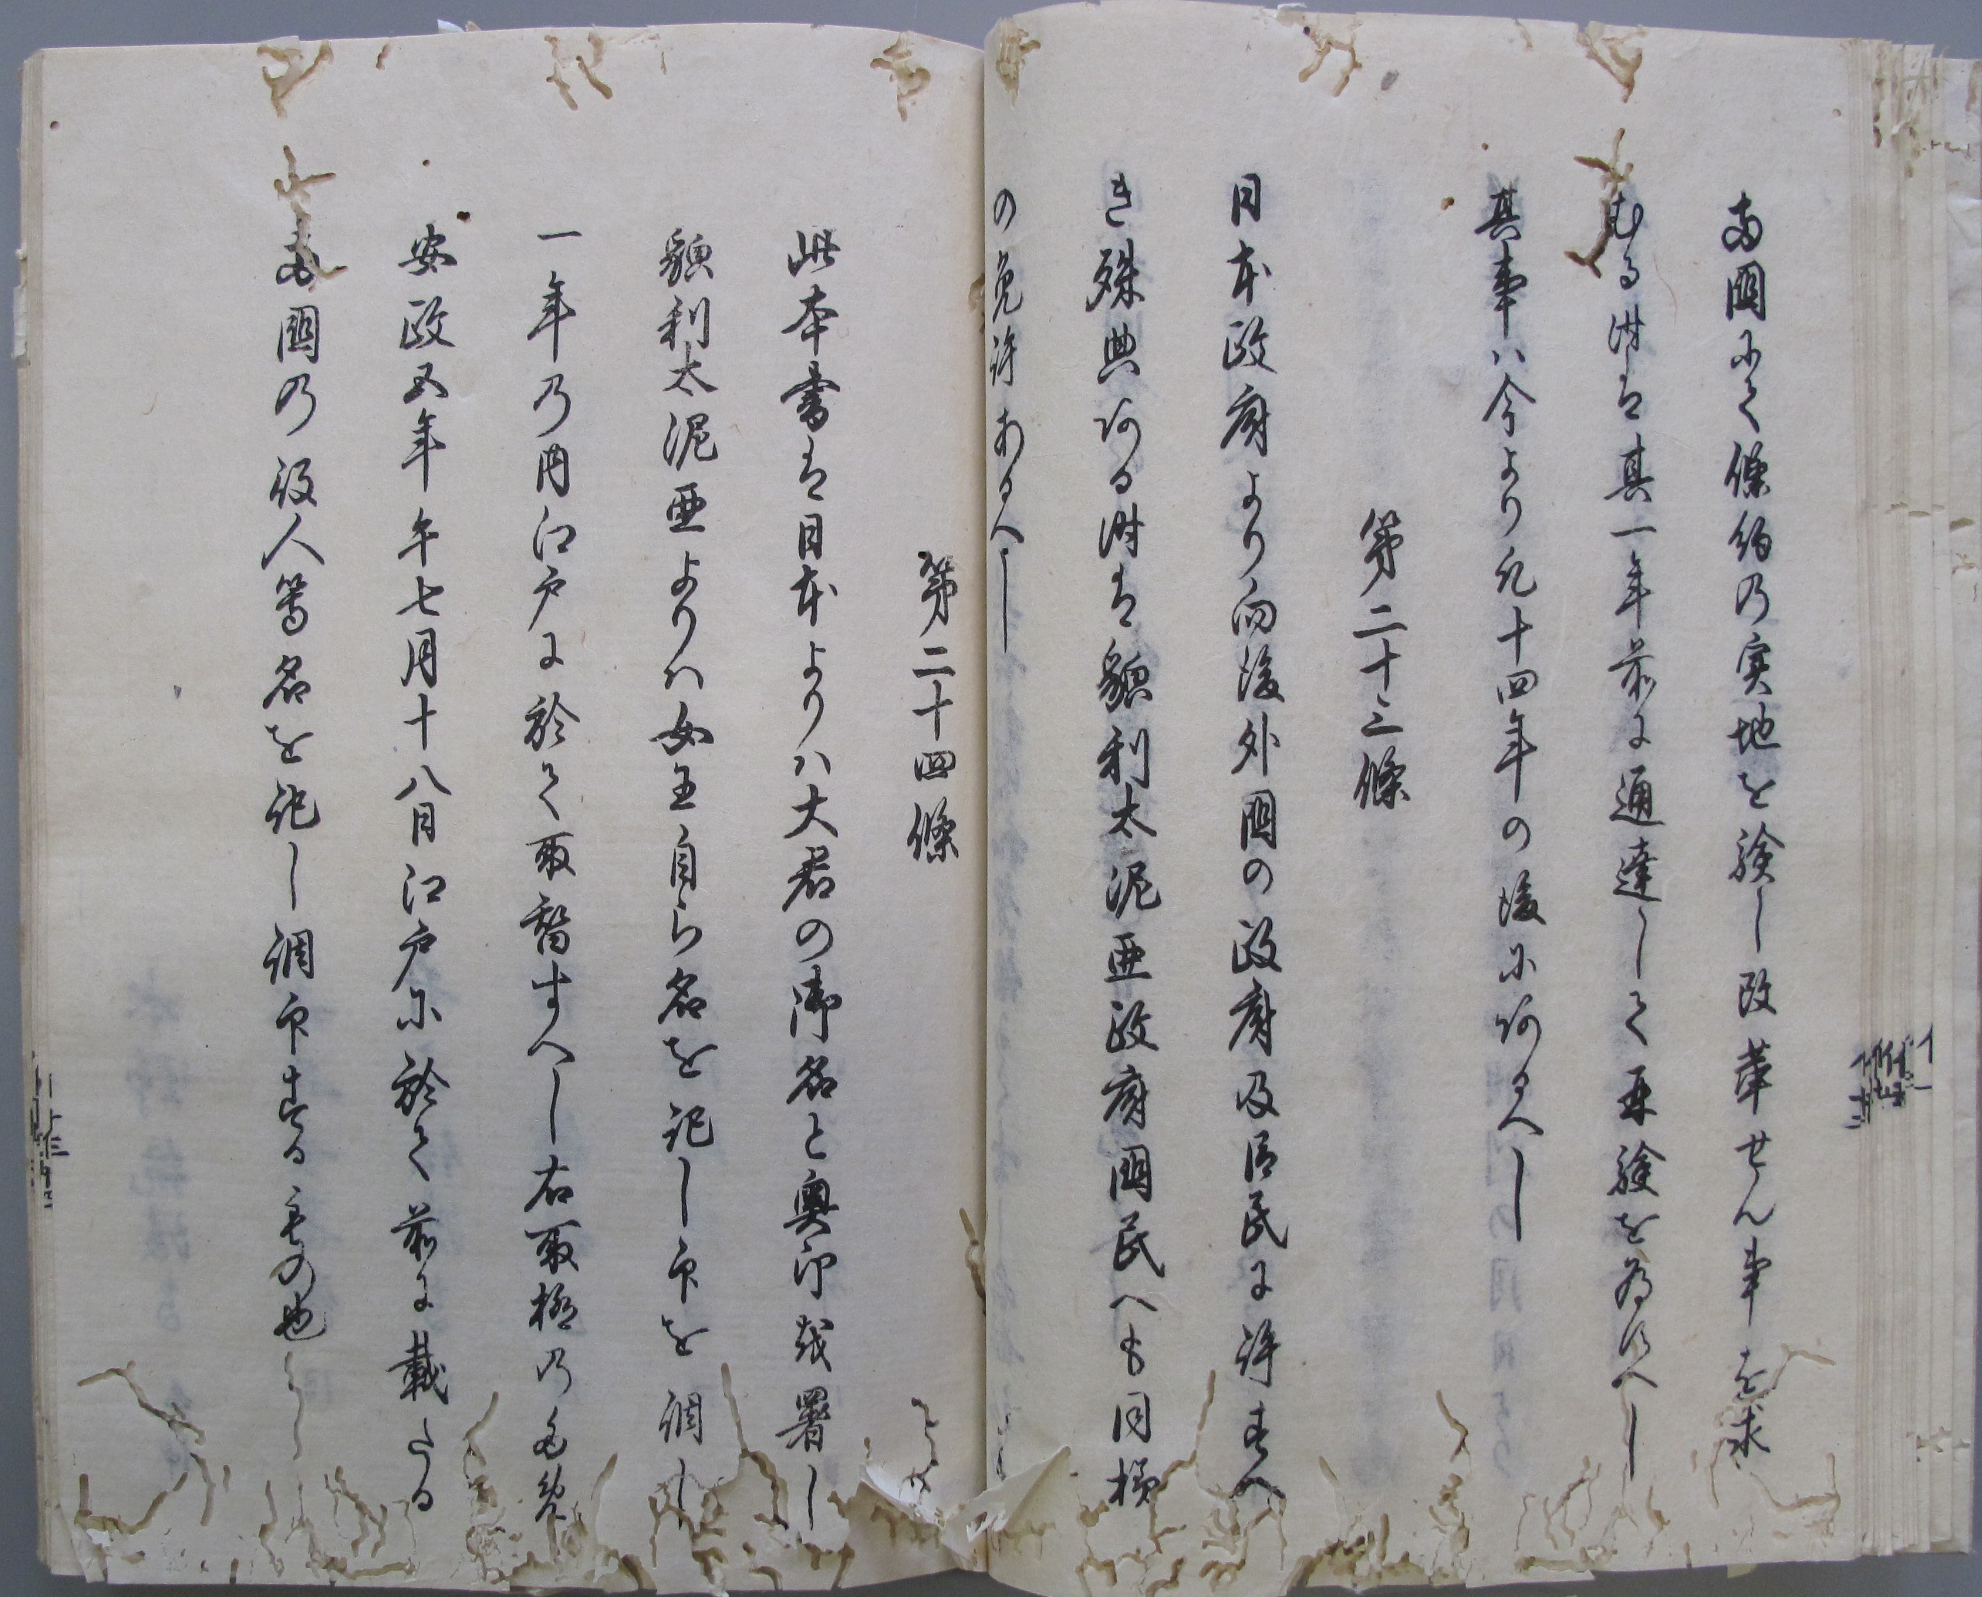 両國にて條約乃実地を験し改革せん事を求
むる時は其一年前に通達して再験を為すへし
其事ハ今より凡十四年の後にあるへし
第二十三條
日本政府より向後外國の政府及臣民に許すへ
き殊典ある時は貌利太泥亜政府國民へも同様
の免許あるへし
第二十四條
此本書は日本よりハ大君の御名と奥印を署し
貌利太泥亜よりハ女王自ら名を記し印を調し
一年乃内江戸に於て取替すへし右取極乃為
安政五年午七月十八日江戸に於て前に載たる
両國乃役人等名を記し調印するもの也